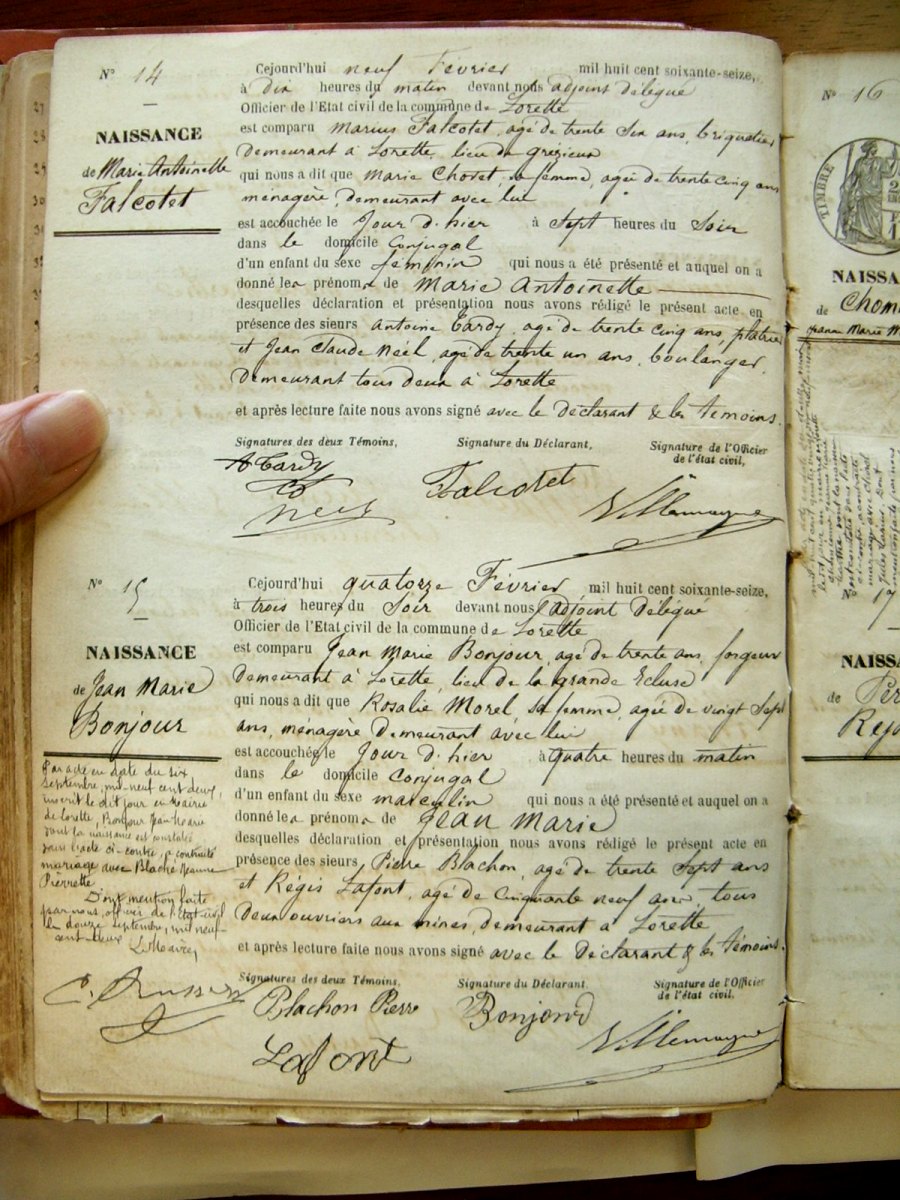 N° 14
NAISSANCE
de Marie Antoinette
Falcotet
Cejourd'hui neuf Fevrier mil huit cent soixante-seize,
à dix heures du matin devant nous adjoint délégué
Officier de l'Etat civil de la commune de Lorette
est comparu Marius Falcotet, agé de trente Six ans, briquetier
demeurant à Lorette, lieu de grezieux
qui nous a dit que Marie Chovet, sa femme, agée de trente cinq ans
ménagère, demeurant avec lui
est accouchée le Jour d'hier à Sept heures du Soir
dans le domicile Conjugal
d'un enfant du sexe féminin qui nous a été présenté et auquel on a
donné les prénoms de Marie Antoinette
desquelles déclaration et présentation nous avons rédigé le présent acte, en
présence des sieurs Antoine Tardy, agé de trente cinq ans, platrier
et Jean Claude Néel, agé de trente un ans, boulanger,
demeurant tous deux à Lorette
et après lecture faite nous avons signé avec le déclarant & les témoins.
Signatures des deux Témoins, Signature du Déclarant, Signature de l'Officier
de l'état civil,
A Tardy Falcotet Villemagne
Néel
N° 15
NAISSANCE
de Jean Marie
Bonjour
Cejourd'hui quatorze Février mil huit cent soixante-seize,
à trois heures du Soir devant nous adjoint délégué
Officier de l'Etat civil de la commune de Lorette
est comparu Jean Marie Bonjour, agé de trente ans, forgeur
demeurant à Lorette, lieu de la grande Ecluse
qui nous a dit que Rosalie Morel, sa femme, agée de vingt Sept
ans, ménagère demeurant avec lui
est accouchée le Jour d'hier à quatre heures du matin
dans le domicile Conjugal
d'un enfant du sexe masculin qui nous a été présenté et auquel on a
donné les prénoms de Jean Marie
desquelles déclaration et présentation nous avons rédigé le présent acte en
présence des sieurs Pierre Blachon, agé de trente Sept ans
et Régis Lafont, agé de Cinquante neuf ans, tous
deux ouvriers aux mines, demeurant à Lorette
et après lecture faite nous avons signé avec le déclarant & les témoins.
Signatures des deux Témoins, Signature du Déclarant, Signature de l'Officier
de l'état civil,
Blachon Pierre Bonjour Villemagne
Lafont
Par acte en date du six
Septembre, mil-neuf cent deux,
inscrit le dit jour en Mairie
de Lorette, Bonjour Jean-Marie
dont la naissance est constatée
dans l'acte ci-contre, a contracté
mariage avec Blache Jeanne
Pierrette
Dont mention faite
par nous, officier de l'Etat-civil
le douze Septembre, mil neuf-
cent-deux
Le Maire,
N° 16
TIMBRE
NAISSA
de Chom
Jeanne Marie
N° 17
NAISSA
de Per
Rejo